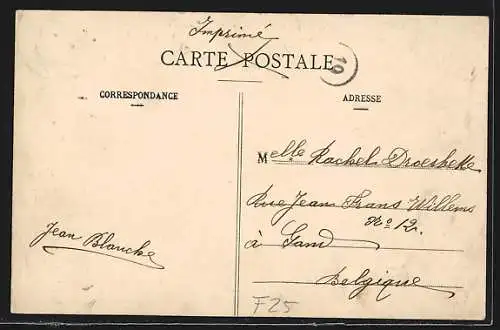 Imprimé
CARTE POSTALE
19
CORRESPONDANCE
ADRESSE
Melle Rachel Droesbeke
Rue Jean Frans Willems
No 12.
à Gand
Belgique
Jean Blanche
F25